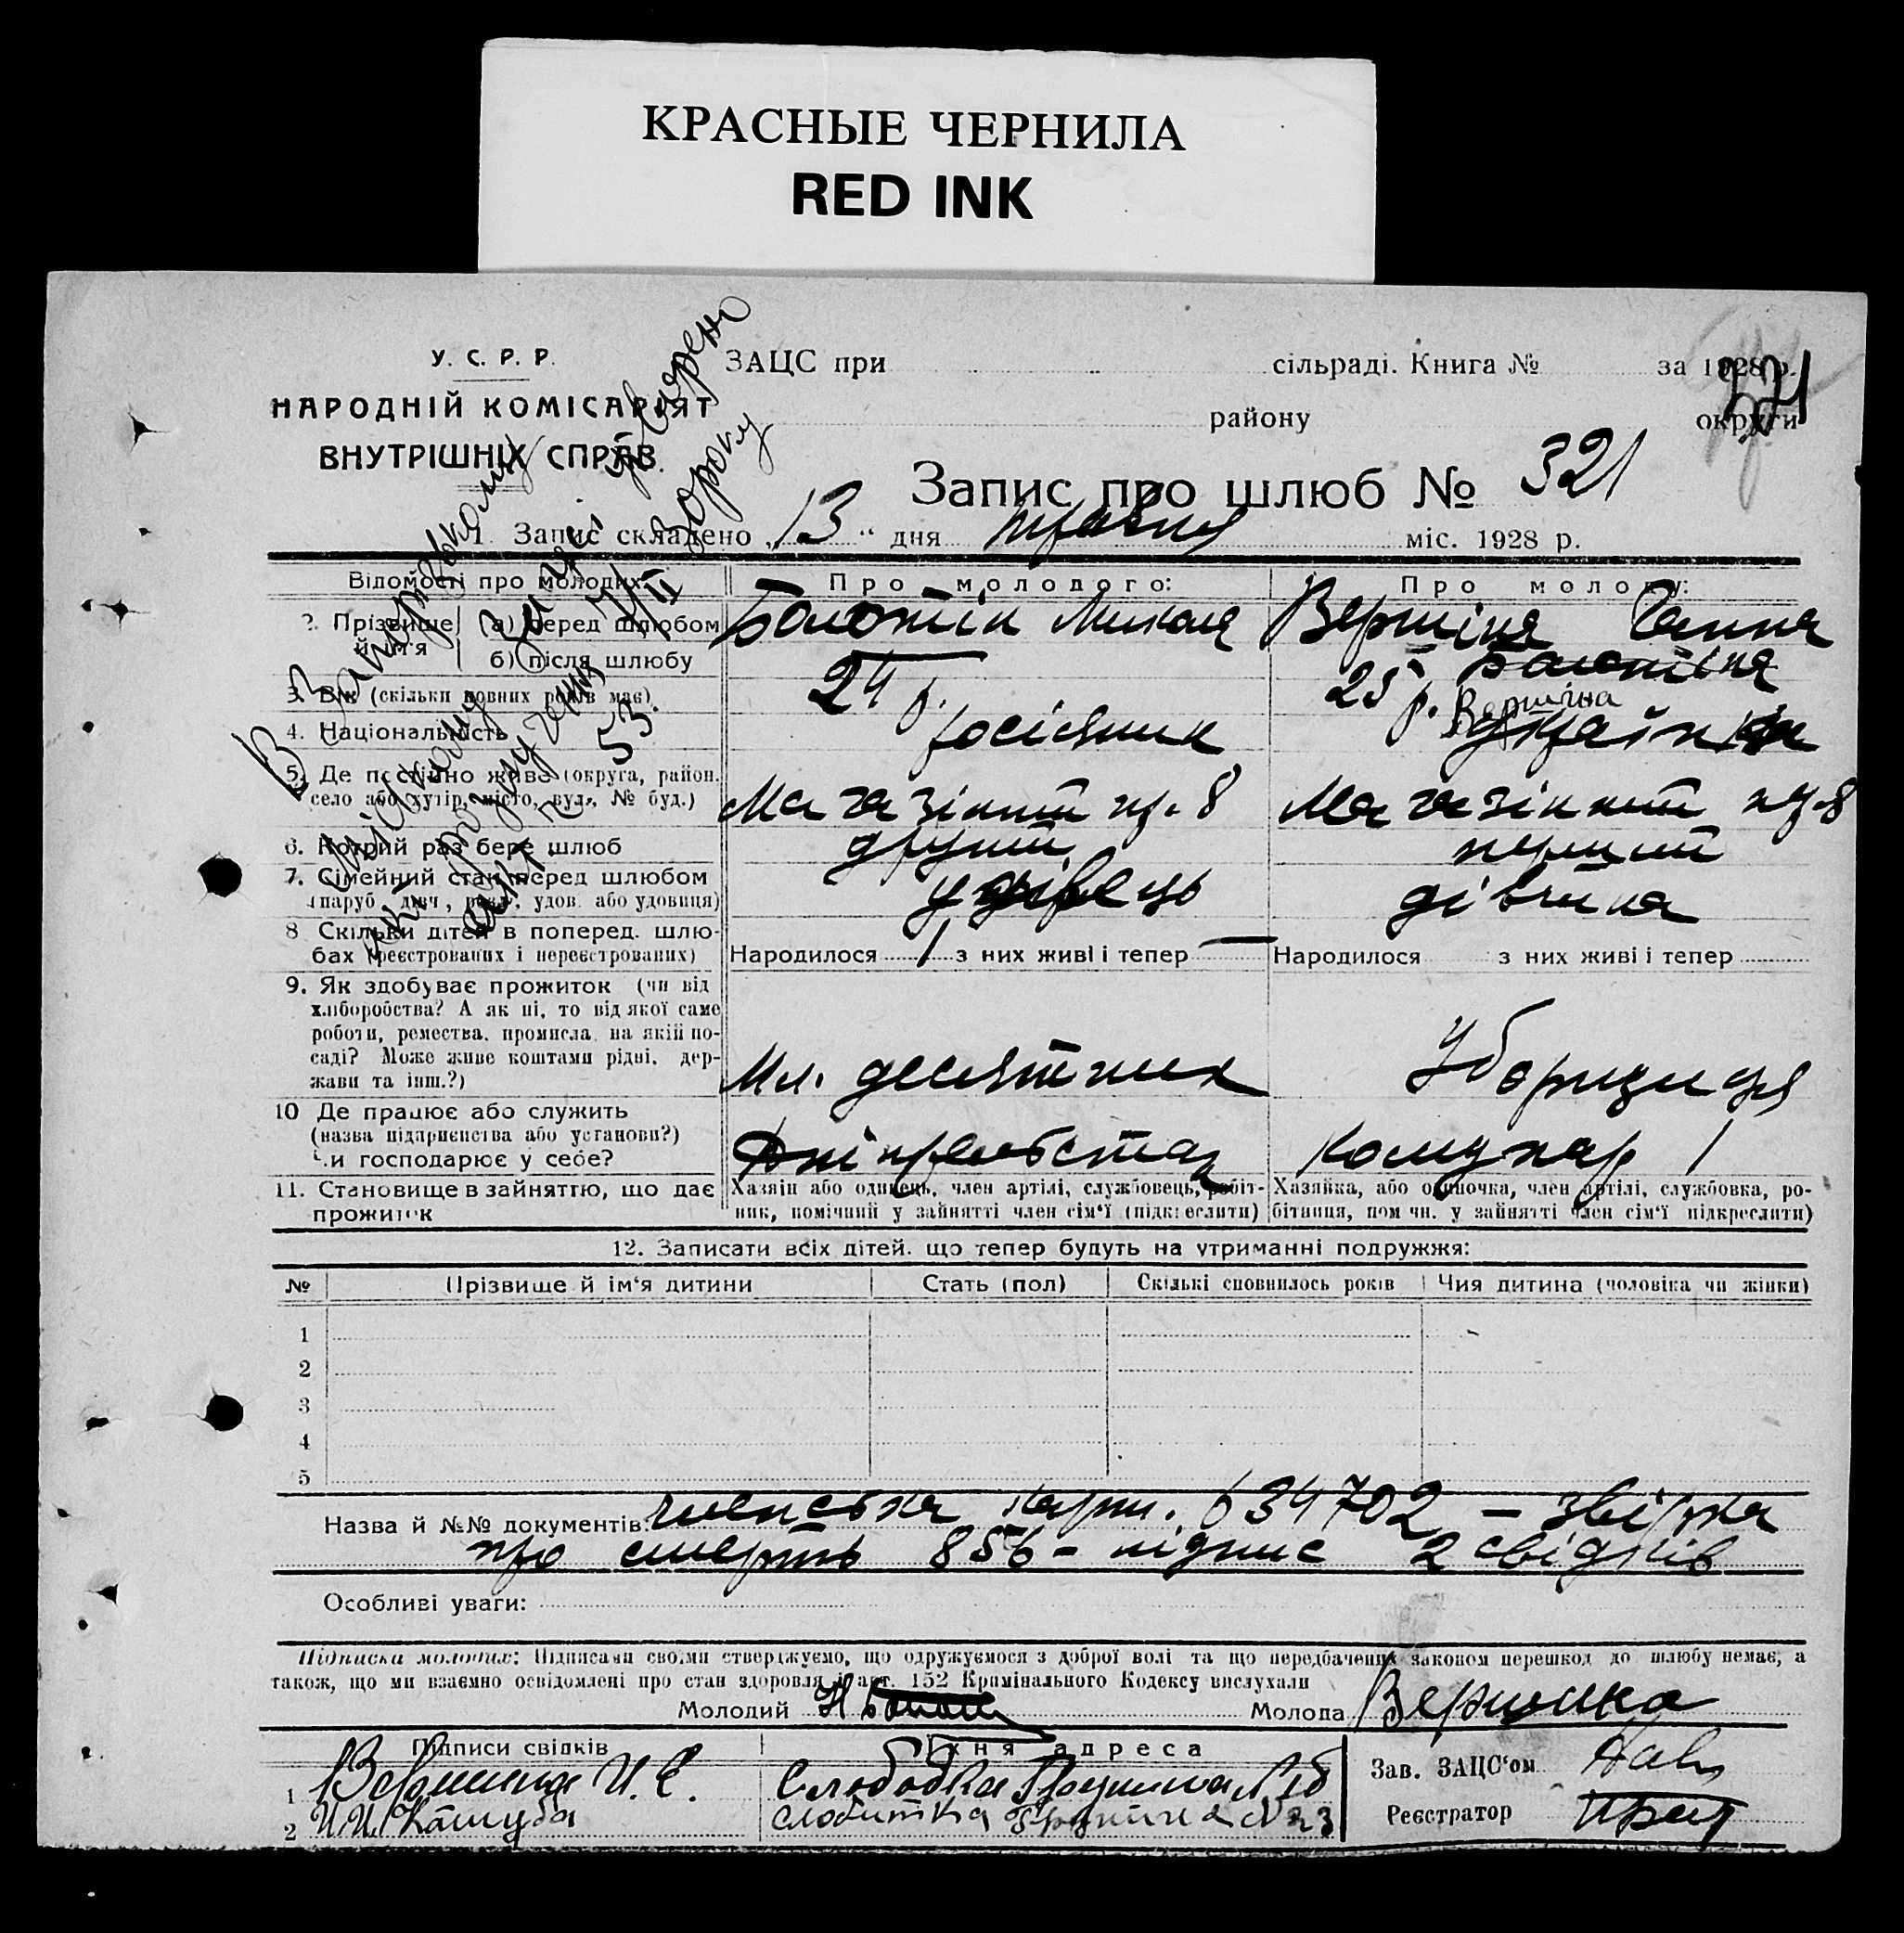 КРАСНЫЕ ЧЕРНИЛА
RED INK
У. С. Р. Р.
НАРОДНІЙ КОМІСАРІЯТ
ВНУТРІШНІХ СПРАВ.
ЗАЦС при сільраді. Книга № за 1928 р.
району округи
321
Запис про шлюб № 321
1 Запис складено „ 13 “ дня травня міс. 1928 р.
В Запорізькому
Міському Загсі утворено
акт розлучення 4/II 30 року
акт № 53.
Відомості про молодих: Про молодого: Про молоду:
2. Прізвище й ім'я (а) перед шлюбом Болотін Микола Вершіна Ганна
б) після шлюбу Болотіна
Вершіна
3. Вік (скільки повних років має) 24 р. 25 р.
4. Національність росіянин українка
5. Де постійно живе (округа, район. Магазінний пр. 8 Магазінний пр. 8
село або хутір, місто, вул., № буд.)
6. Котрий раз бере шлюб другий перший
7. Сімейний стан перед шлюбом удівець дівчина
(паруб., дівч., розв., удов. або удовиця)
8 Скільки дітей в поперед. шлю-
бах (реєстрованих і нереєстрованих) Народилося 1 з них живі і тепер — Народилося з них живі і тепер
9. Як здобуває прожиток (чи від
хліборобства? А як ні, то від якої саме
роботи, ремества, промисла, на якій по-
саді? Може живе коштами рідні, дер-
жави та інш.?) Мл. десятник Уборщиця
10 Де працює або служить
(назва підприємства або установи?)
Чи господарює у себе? Дніпрельбстан Комунар 1
11. Становище в зайняттю, що дає
прожиток
Хазяїн або одинець, член артілі, службовець, робіт-
ник, помічний у зайнятті член сім'ї (підкреслити)
Хазяйка, або одиночка, член артілі, службовка, ро-
бітниця, пом чн. у зайнятті член сім'ї підкреслити)
12. Записати всіх дітей, що тепер будуть на утриманні подружжя:
№ Прізвище й ім'я дитини Стать (пол) Скількі сповнилось років Чия дитина (чоловіка чи жінки)
1
2
3
4
5
Назва й №№ документів: членська карт. 634702 – звірка
про смерть 856 – підпис 2 свідків
Особливі уваги:
Підписка молодих: Підписами своїми стверджуємо, що одружуємося з доброї волі та що передбачених законом перешкод до шлюбу немає, а
також, що ми взаємно освідомлені про стан здоровля і арт. 152 Кримінального Кодексу вислухали
Молодий Н Болот Молода Вершина
Підписи свідків Їхня адреса
1 Вершина И. Е. Слободка
2 И. И. Кашуба слобитка № 23
Зав. ЗАЦС'ом
Реєстратор